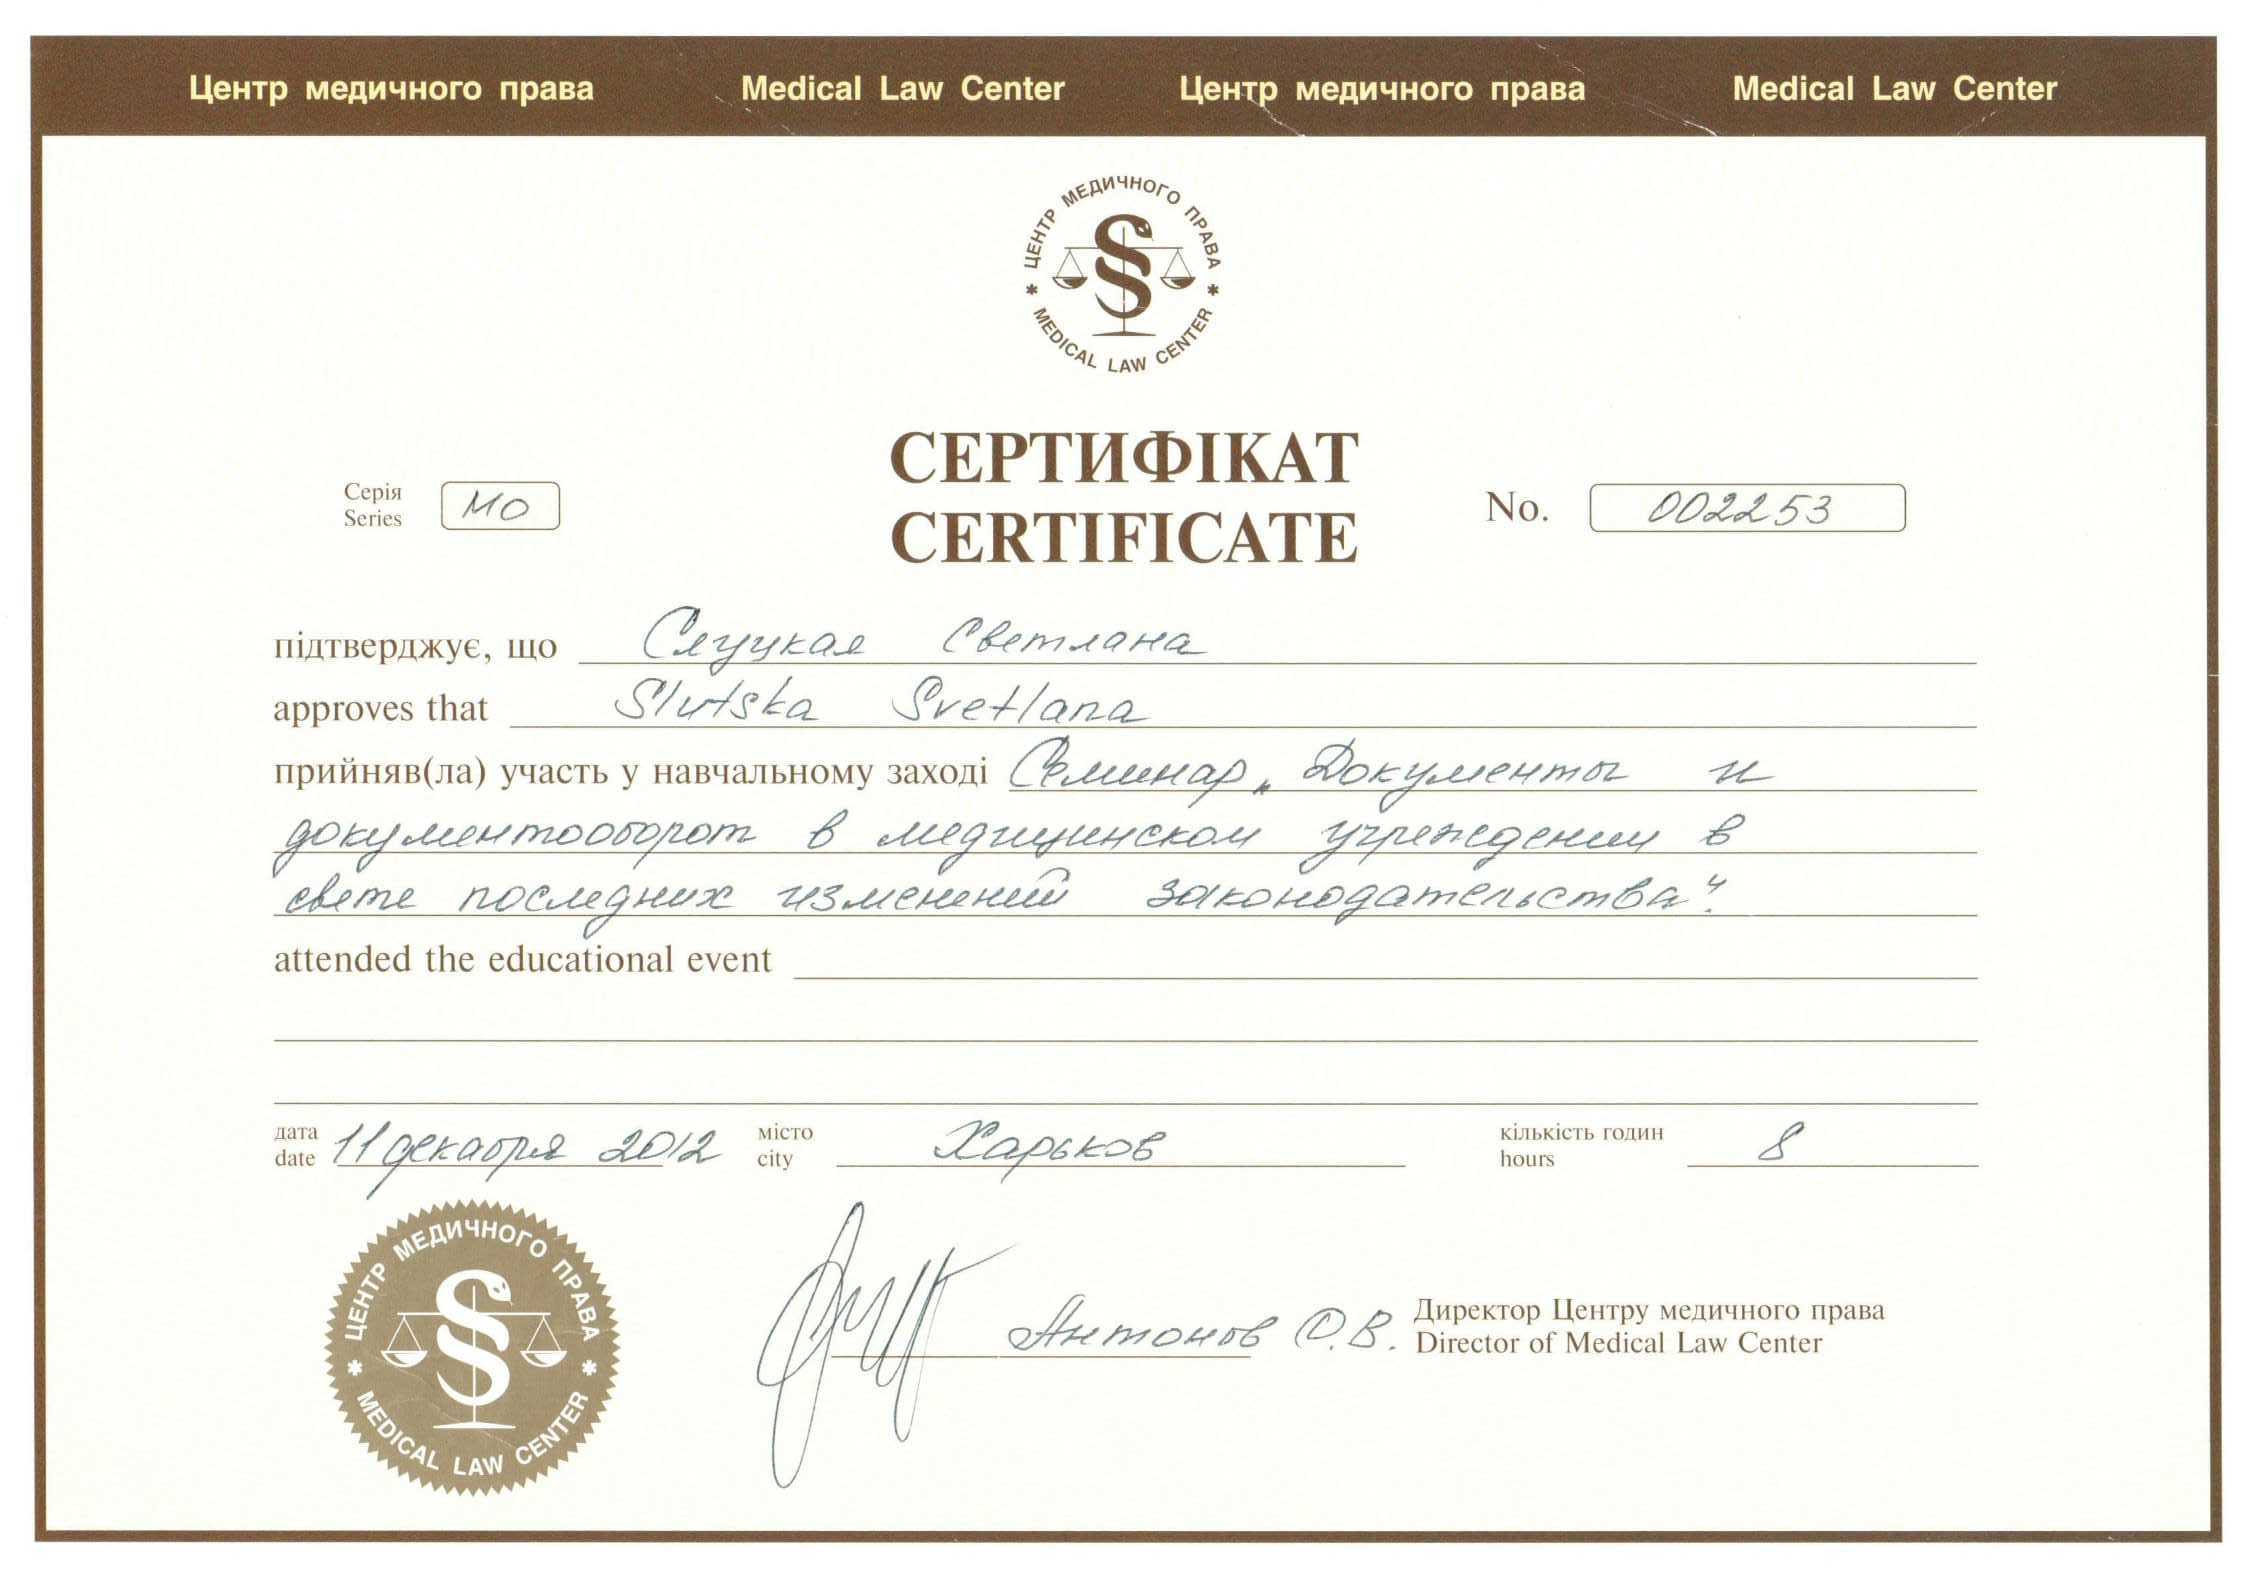 Центр медичного права Medical Law Center Центр медичного права Medical Law Center
ЦЕНТР МЕДИЧНОГО ПРАВА
* MEDICAL LAW CENTER *
СЕРТИФІКАТ
CERTIFICATE
Серія
Series
МО
No. 002253
підтверджує, що Слуцкая Светлана
approves that Slutska Svetlana
прийняв(ла) участь у навчальному заході Семинар „Документы и
документооборот в медицинском учреждении в
свете последних изменений законодательства“.
attended the educational event
дата
date
11 декабря 2012
місто
city
Харьков
кількість годин
hours
8
ЦЕНТР МЕДИЧНОГО ПРАВА
* MEDICAL LAW CENTER *
Антонов О.В.
Директор Центру медичного права
Director of Medical Law Center